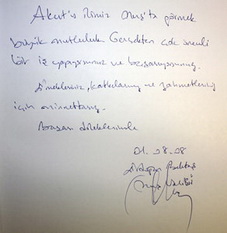 Akut'u ilimiz Muş'ta görmek
büyük mutluluk Gerçekten çok önemli
bir iş yapıyorsunuz ve başarıyorsunuz.
katkılarınız ve
için minnettarız.
Başarı dileklerimle
01.08.08